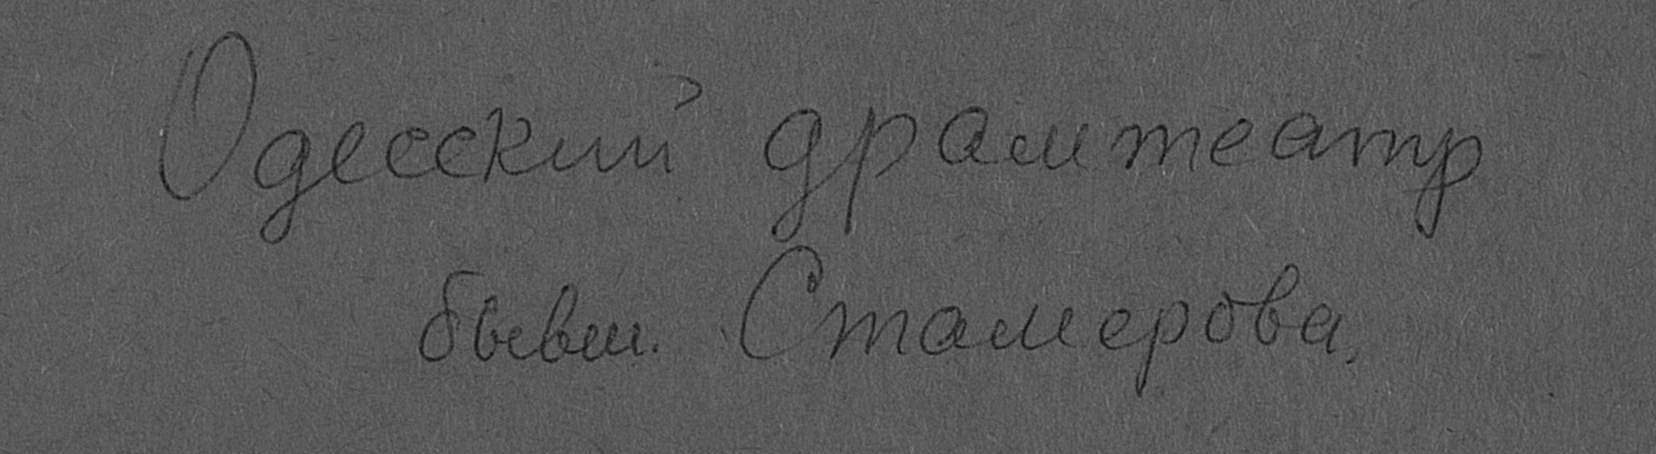 Одесский драмтеатр
бывш. Стамерова.